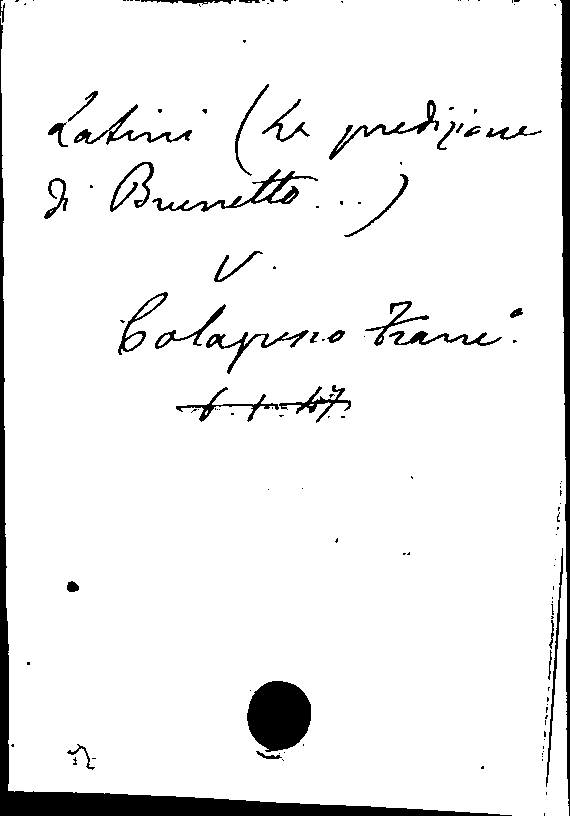 Latini (La predizione
di Brunetto ...)
V.
Colagrosso Franc.º
6. 1. 47